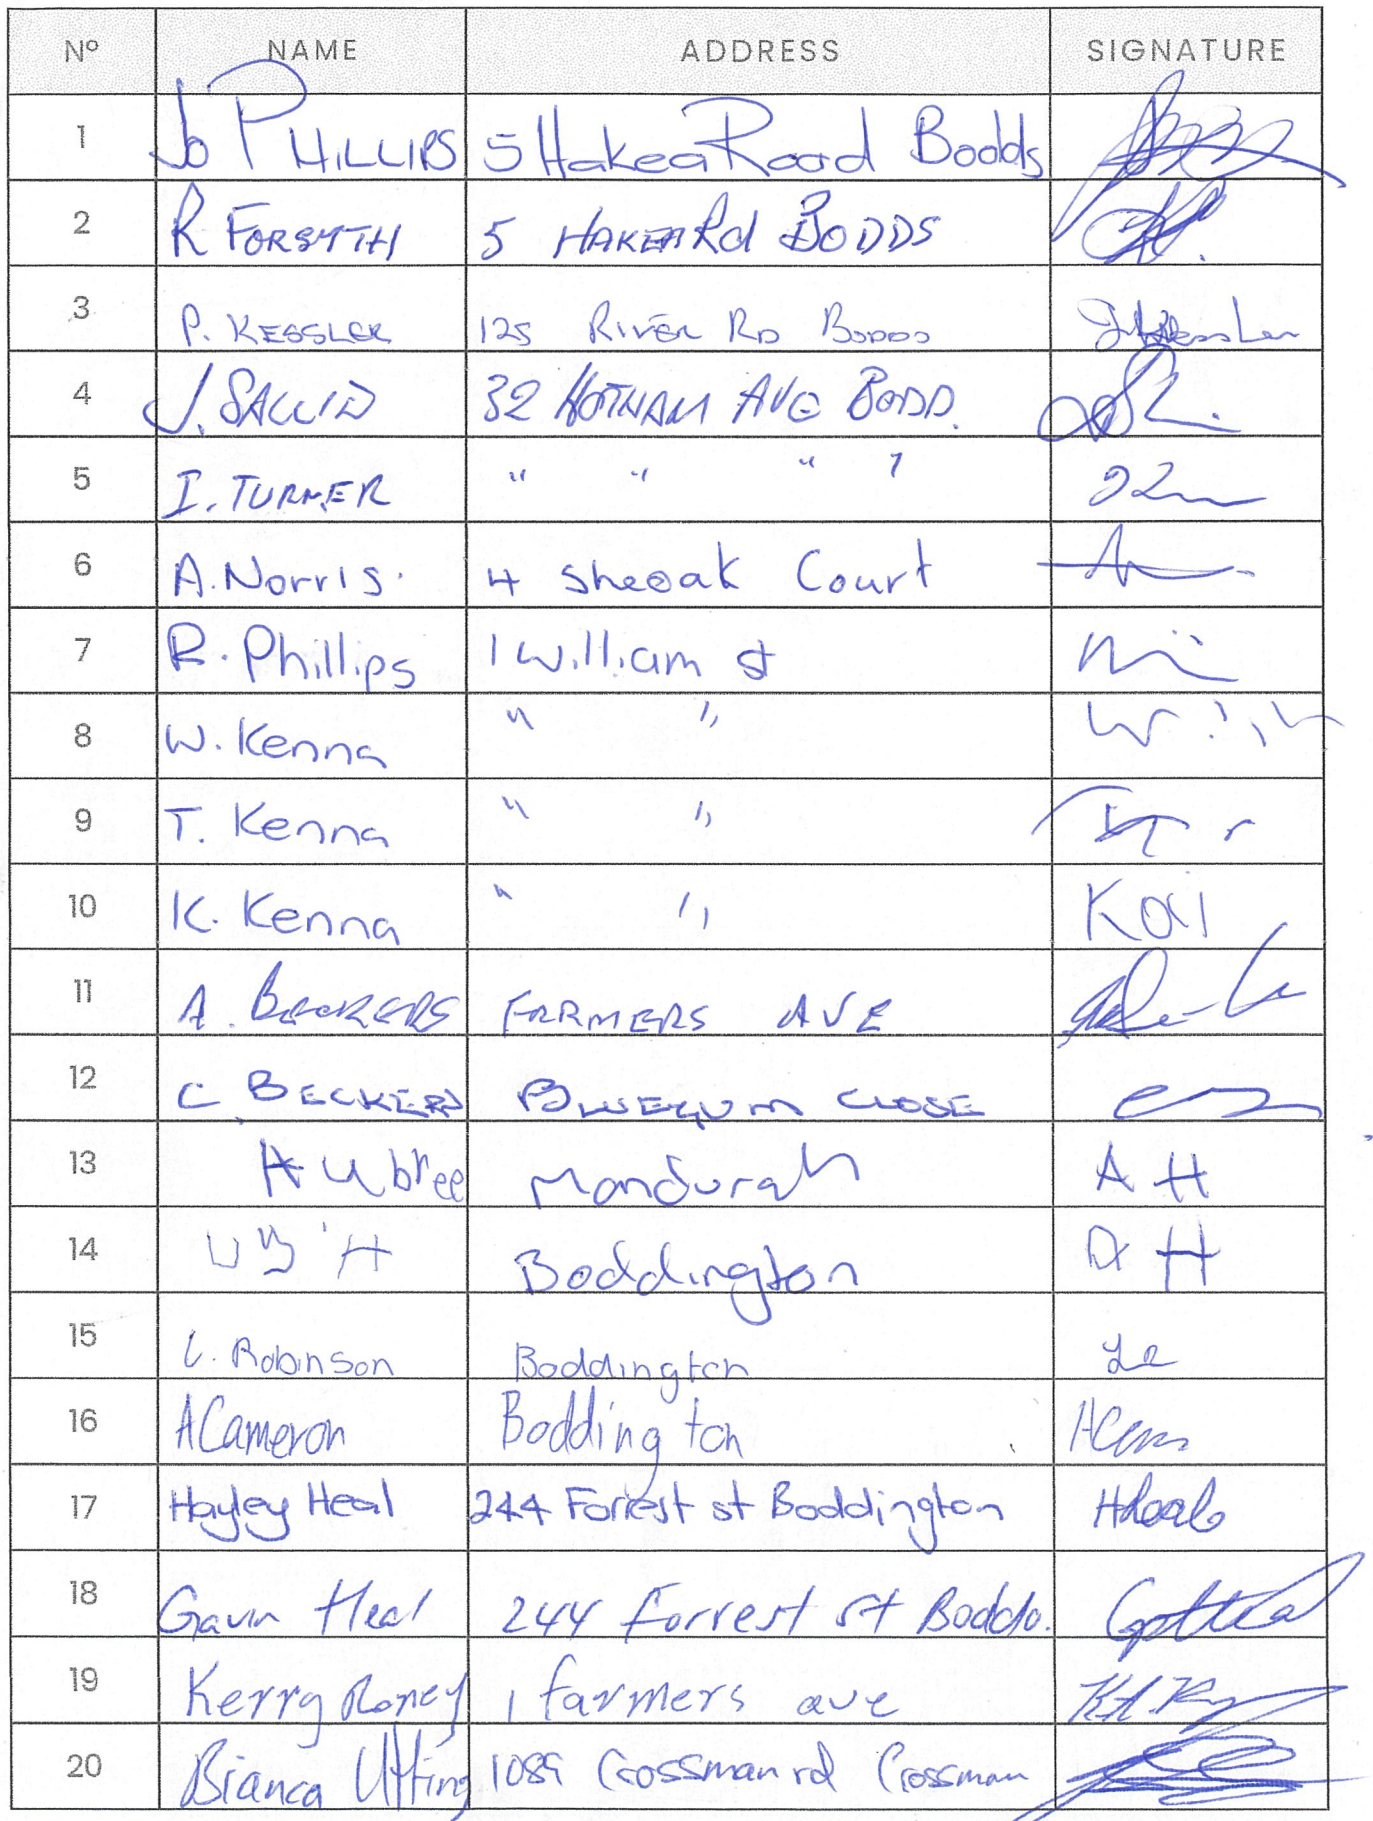 Nº NAME ADDRESS SIGNATURE
1 Jo PHILLIPS 5 Hakea Road Bodds
2 R FORSYTH 5 HAKEA Rd BODDS
3 P. KESSLER 125 RIVER RD BODDS
4 J. 32 HOTHAM AVE BODD.
5 I. TURNER " " " "
6 A. Norris. 4 Sheoak Court
7 R. Phillips 1 William st
8 W. Kenna " "
9 T. Kenna " "
10 K. Kenna " " Kai
11 A. BECKERS FARMERS AVE
12 C BECKERS BLUEGUM CLOSE
13 Aubree Mandurah A H
14 Boddington H
15 L. Robinson Boddington
16 A Cameron Boddington
17 Hayley Heal 244 Forrest st Boddington
18 Gavin Heal 244 Forrest st Boddo.
19 Kerry Roney 1 farmers ave
20 Bianca Utting 1089 Crossman rd Crossman